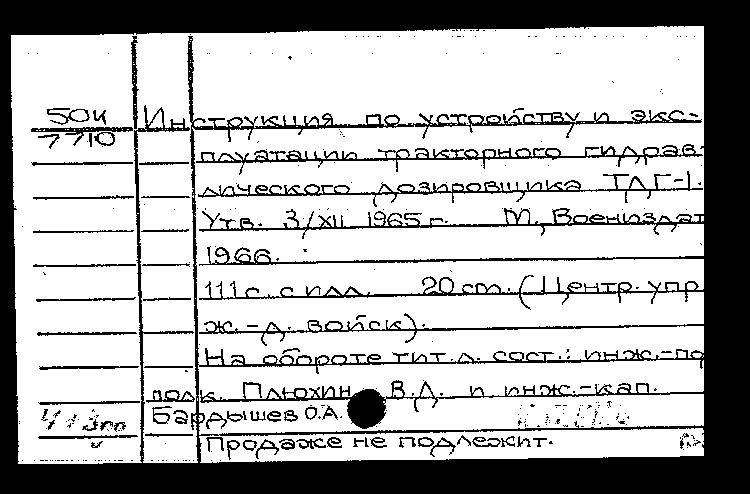 50и Инструкция по устройству и экс-
7710
плуатации тракторного гидрав-
лического дозировщика ТДГ-1.
Утв. 3/XII 1965 г. М., Воениздат
1966.
111 с. с илл. 20 см. (Центр. упр
ж.-д. войск).
На обороте тит. л. сост.: инж.-по
полк. Плюхин В.Д. и инж.-кап.
Бардышев О.А.
Продаже не подлежит.